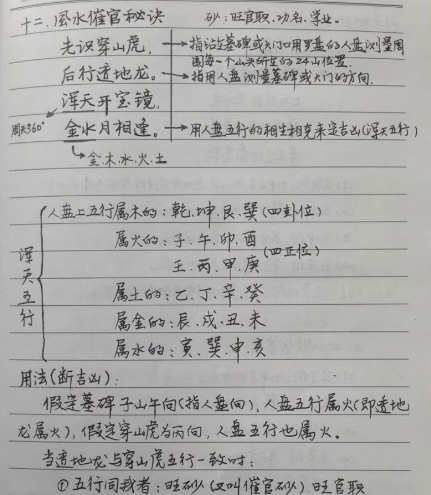 十二. 风水催官秘诀 砂:旺官职.功名.学业。
先识穿山虎, → 指站在墓碑或大门口用罗盘的人盘测量周
围每一个山头所在的24山位置.
后行透地龙。 → 指用人盘测量墓碑或大门的方向.
浑天开宝镜,
周天360°
金水月相逢。 → 用人盘五行的相生相克来定吉凶(浑天五行)
金.木.水.火.土
浑天五行
人盘上五行属木的:乾.坤.艮.巽(四卦位)
属火的:子.午.卯.酉
(四正位)
壬.丙.甲.庚
属土的:乙.丁.辛.癸
属金的:辰.戌.丑.未
属水的:寅.巽.申.亥
用法(断吉凶):
假定墓碑子山午向(指人盘向),人盘五行属火(即透地
龙属火),假定穿山虎为丙向,人盘五行也属火。
当透地龙与穿山虎五行一致时:
① 五行同我者:旺砂(又叫催官砂).旺官职